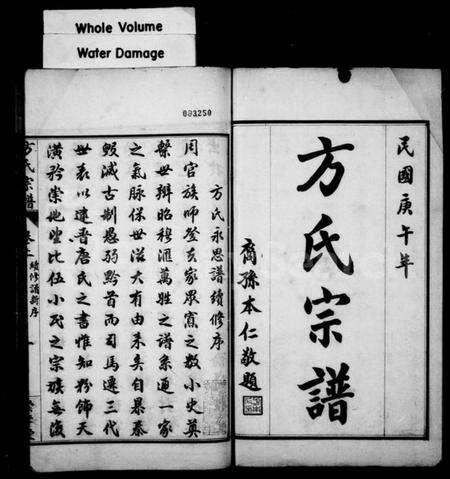 Whole Volume
Water Damage
093250
民國庚午年
方氏宗譜
裔孫本仁敬題
方氏永思譜續修序
周官族師登夫家眾寡之數小史奠
繫世辨昭穆滙萬姓之譜系通一家
之氣脉保世滋大有由來矣自暴秦
蝦滅古制愚弱黔首而司馬遷三代
世表以逮晉唐氏之書惟知粉飾天
潢矜崇地望比伍小民之宗族無復
方氏宗譜
卷之
續修譜新序
一